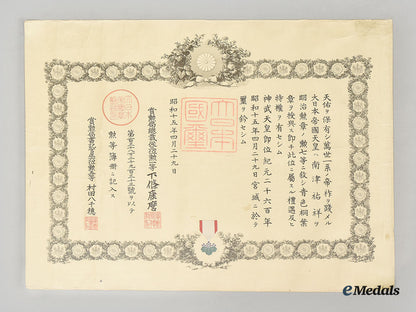 天佑ヲ保有シ萬世一系ノ帝祚ヲ踐メル
大日本帝國天皇ハ南津祐祥ヲ
明治勲章ノ勲七等ニ敍シ青色桐葉
章ヲ授與ス即チ此位ニ屬スル禮遇及ヒ
特權ヲ有セシム
神武天皇即位紀元二千六百年
昭和十五年四月二十九日宮城ニ於テ
璽ヲ鈐セシム
大日本
國璽
昭和十五年四月二十九日
賞勲局總裁從四位勲二等下條康麿
ヲ以テ
勲等簿册ニ記入ス
村田八千穂
eMedals